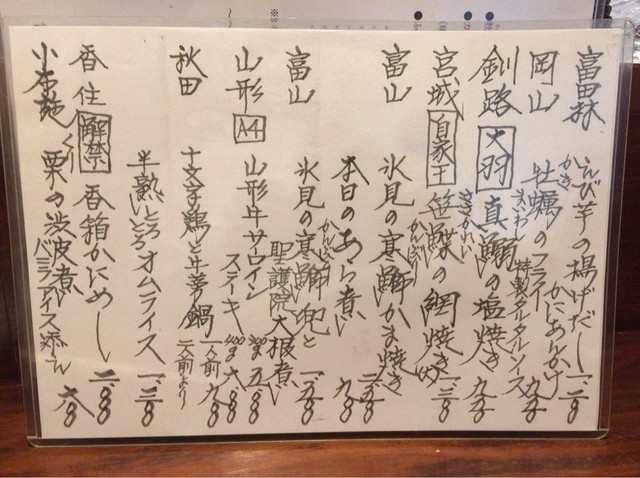 富田林 えび芋の揚げだし かにあんかけ 一、二〇〇
岡山 牡蠣のフライ 特製タルタルソース 九五〇
かき
釧路 大羽 真鰯の塩焼き 九五〇
まいわし
宮城 自家干 笹鰈の網焼き 一、三〇〇
ささがれい
富山 氷見の寒鰤かま焼き
かんぶり
本日のあら煮 九〇〇
富山 氷見の寒鰤兜と
かんぶり
聖護院大根煮 一、五〇〇
山形 A4 山形牛サーロイン
ステーキ 300g 五、八〇〇
400g 六、八〇〇
秋田 十文字鶏と牛蒡鍋 一人前 九〇〇
二人前より
半熟とろとろオムライス 一、三〇〇
香住 解禁 香箱かにめし 二、八〇〇
小布施 栗の渋皮煮
くり
バニラアイス添え 六〇〇